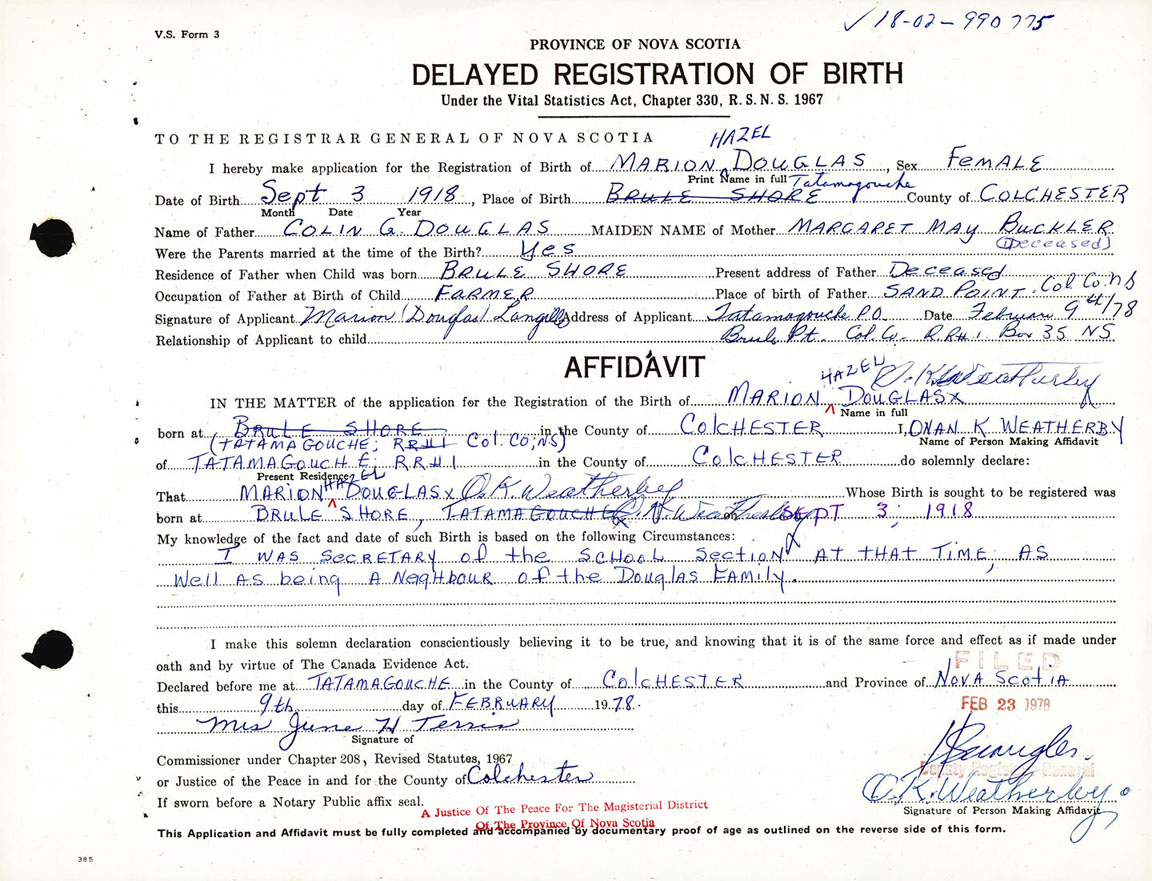 ✓ 18-02-990775
V.S. Form 3
PROVINCE OF NOVA SCOTIA
DELAYED REGISTRATION OF BIRTH
Under the Vital Statistics Act, Chapter 330, R. S. N. S. 1967
TO THE REGISTRAR GENERAL OF NOVA SCOTIA
HAZEL
I hereby make application for the Registration of Birth of MARION DOUGLAS, Sex FEMALE
Print Name in full
Tatamagouche
Date of Birth Sept 3 1918, Place of Birth BRULE SHORE County of COLCHESTER
Month Date Year
Name of Father COLIN G. DOUGLAS MAIDEN NAME of Mother MARGARET MAY BUCKLER
(Deceased)
Were the Parents married at the time of the Birth? Yes
Residence of Father when Child was born BRULE SHORE Present address of Father Deceased
Occupation of Father at Birth of Child FARMER Place of birth of Father SAND POINT. Col. Co. NS
Signature of Applicant Marion (Douglas) Langille Address of Applicant Tatamagouche P.O. Date February 9th/78
Relationship of Applicant to child Brule Pt. Col. Co. R.R#1. Box 35 NS
AFFIDAVIT
HAZEL O. K. Weatherby
IN THE MATTER of the application for the Registration of the Birth of MARION DOUGLAS x
Name in full
born at BRULE SHORE in the County of COLCHESTER I, ONAN K WEATHERBY
(TATAMAGOUCHE; RR#1 Col. Co; NS) Name of Person Making Affidavit
of TATAMAGOUCHE; RR#1 in the County of COLCHESTER do solemnly declare:
Present Residence
HAZEL
That MARION DOUGLAS x O. K. Weatherby Whose Birth is sought to be registered was
born at BRULE SHORE, TATAMAGOUCHE O. K. Weatherby on SEPT 3; 1918
My knowledge of the fact and date of such Birth is based on the following Circumstances:
I WAS SECRETARY of the SCHOOL Section AT THAT TIME; AS
Well AS being A NeigHBOUR of the DouglAS FAMILY.
I make this solemn declaration conscientiously believing it to be true, and knowing that it is of the same force and effect as if made under
oath and by virtue of The Canada Evidence Act.
FILED
Declared before me at TATAMAGOUCHE in the County of COLCHESTER and Province of NOVA SCOTIA
this 9th day of FEBRUARY 1978.
FEB 23 1978
Mrs June H Terris
Signature of
Commissioner under Chapter 208, Revised Statutes, 1967
Deputy Registrar General
or Justice of the Peace in and for the County of Colchester
O. K. Weatherby
If sworn before a Notary Public affix seal.
A Justice Of The Peace For The Magisterial District
Signature of Person Making Affidavit
Of The Province Of Nova Scotia
This Application and Affidavit must be fully completed and accompanied by documentary proof of age as outlined on the reverse side of this form.
385